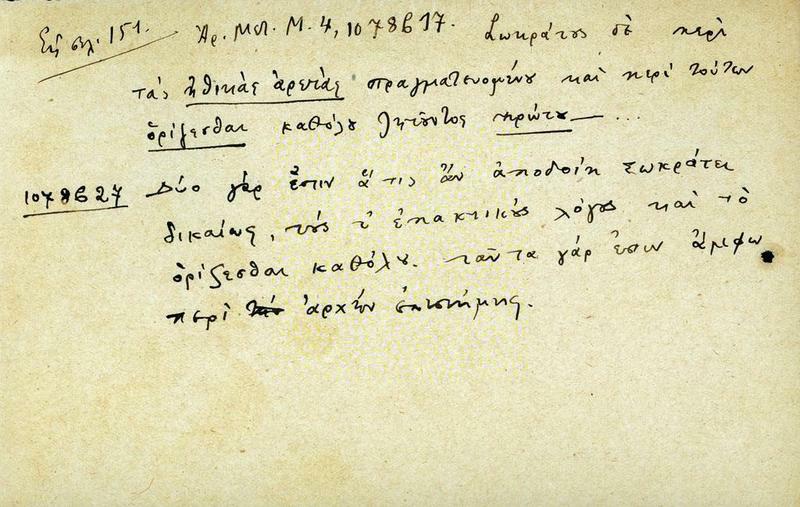 Εἰς σελ. 151. Ἀρ. Μετ. Μ. 4, 1078b17. Σωκράτους δὲ περὶ
τὰς ἠθικὰς ἀρετὰς πραγματευομένου καὶ περὶ τούτων
ὁρίζεσθαι καθόλου ζητοῦντος πρώτου — ...
1078b27 Δύο γάρ ἐστιν ἅ τις ἂν ἀποδοίη Σωκράτει
δικαίως, τούς τ' ἐπακτικοὺς λόγους καὶ τὸ
ὁρίζεσθαι καθόλου. ταῦτα γάρ ἐστιν ἄμφω
περὶ ἀρχὴν ἐπιστήμης.